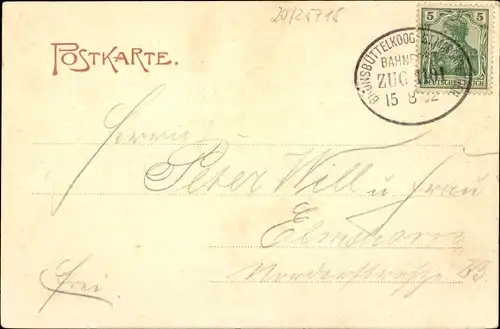 20/25715
POSTKARTE.
BRUNSBÜTTELKOOG
BAHNP
ZUG 1191
15 8 02
5 5
DEUTSCHES REICH
Herrn
Peter Will u. Frau
Elmshorn
Frei.